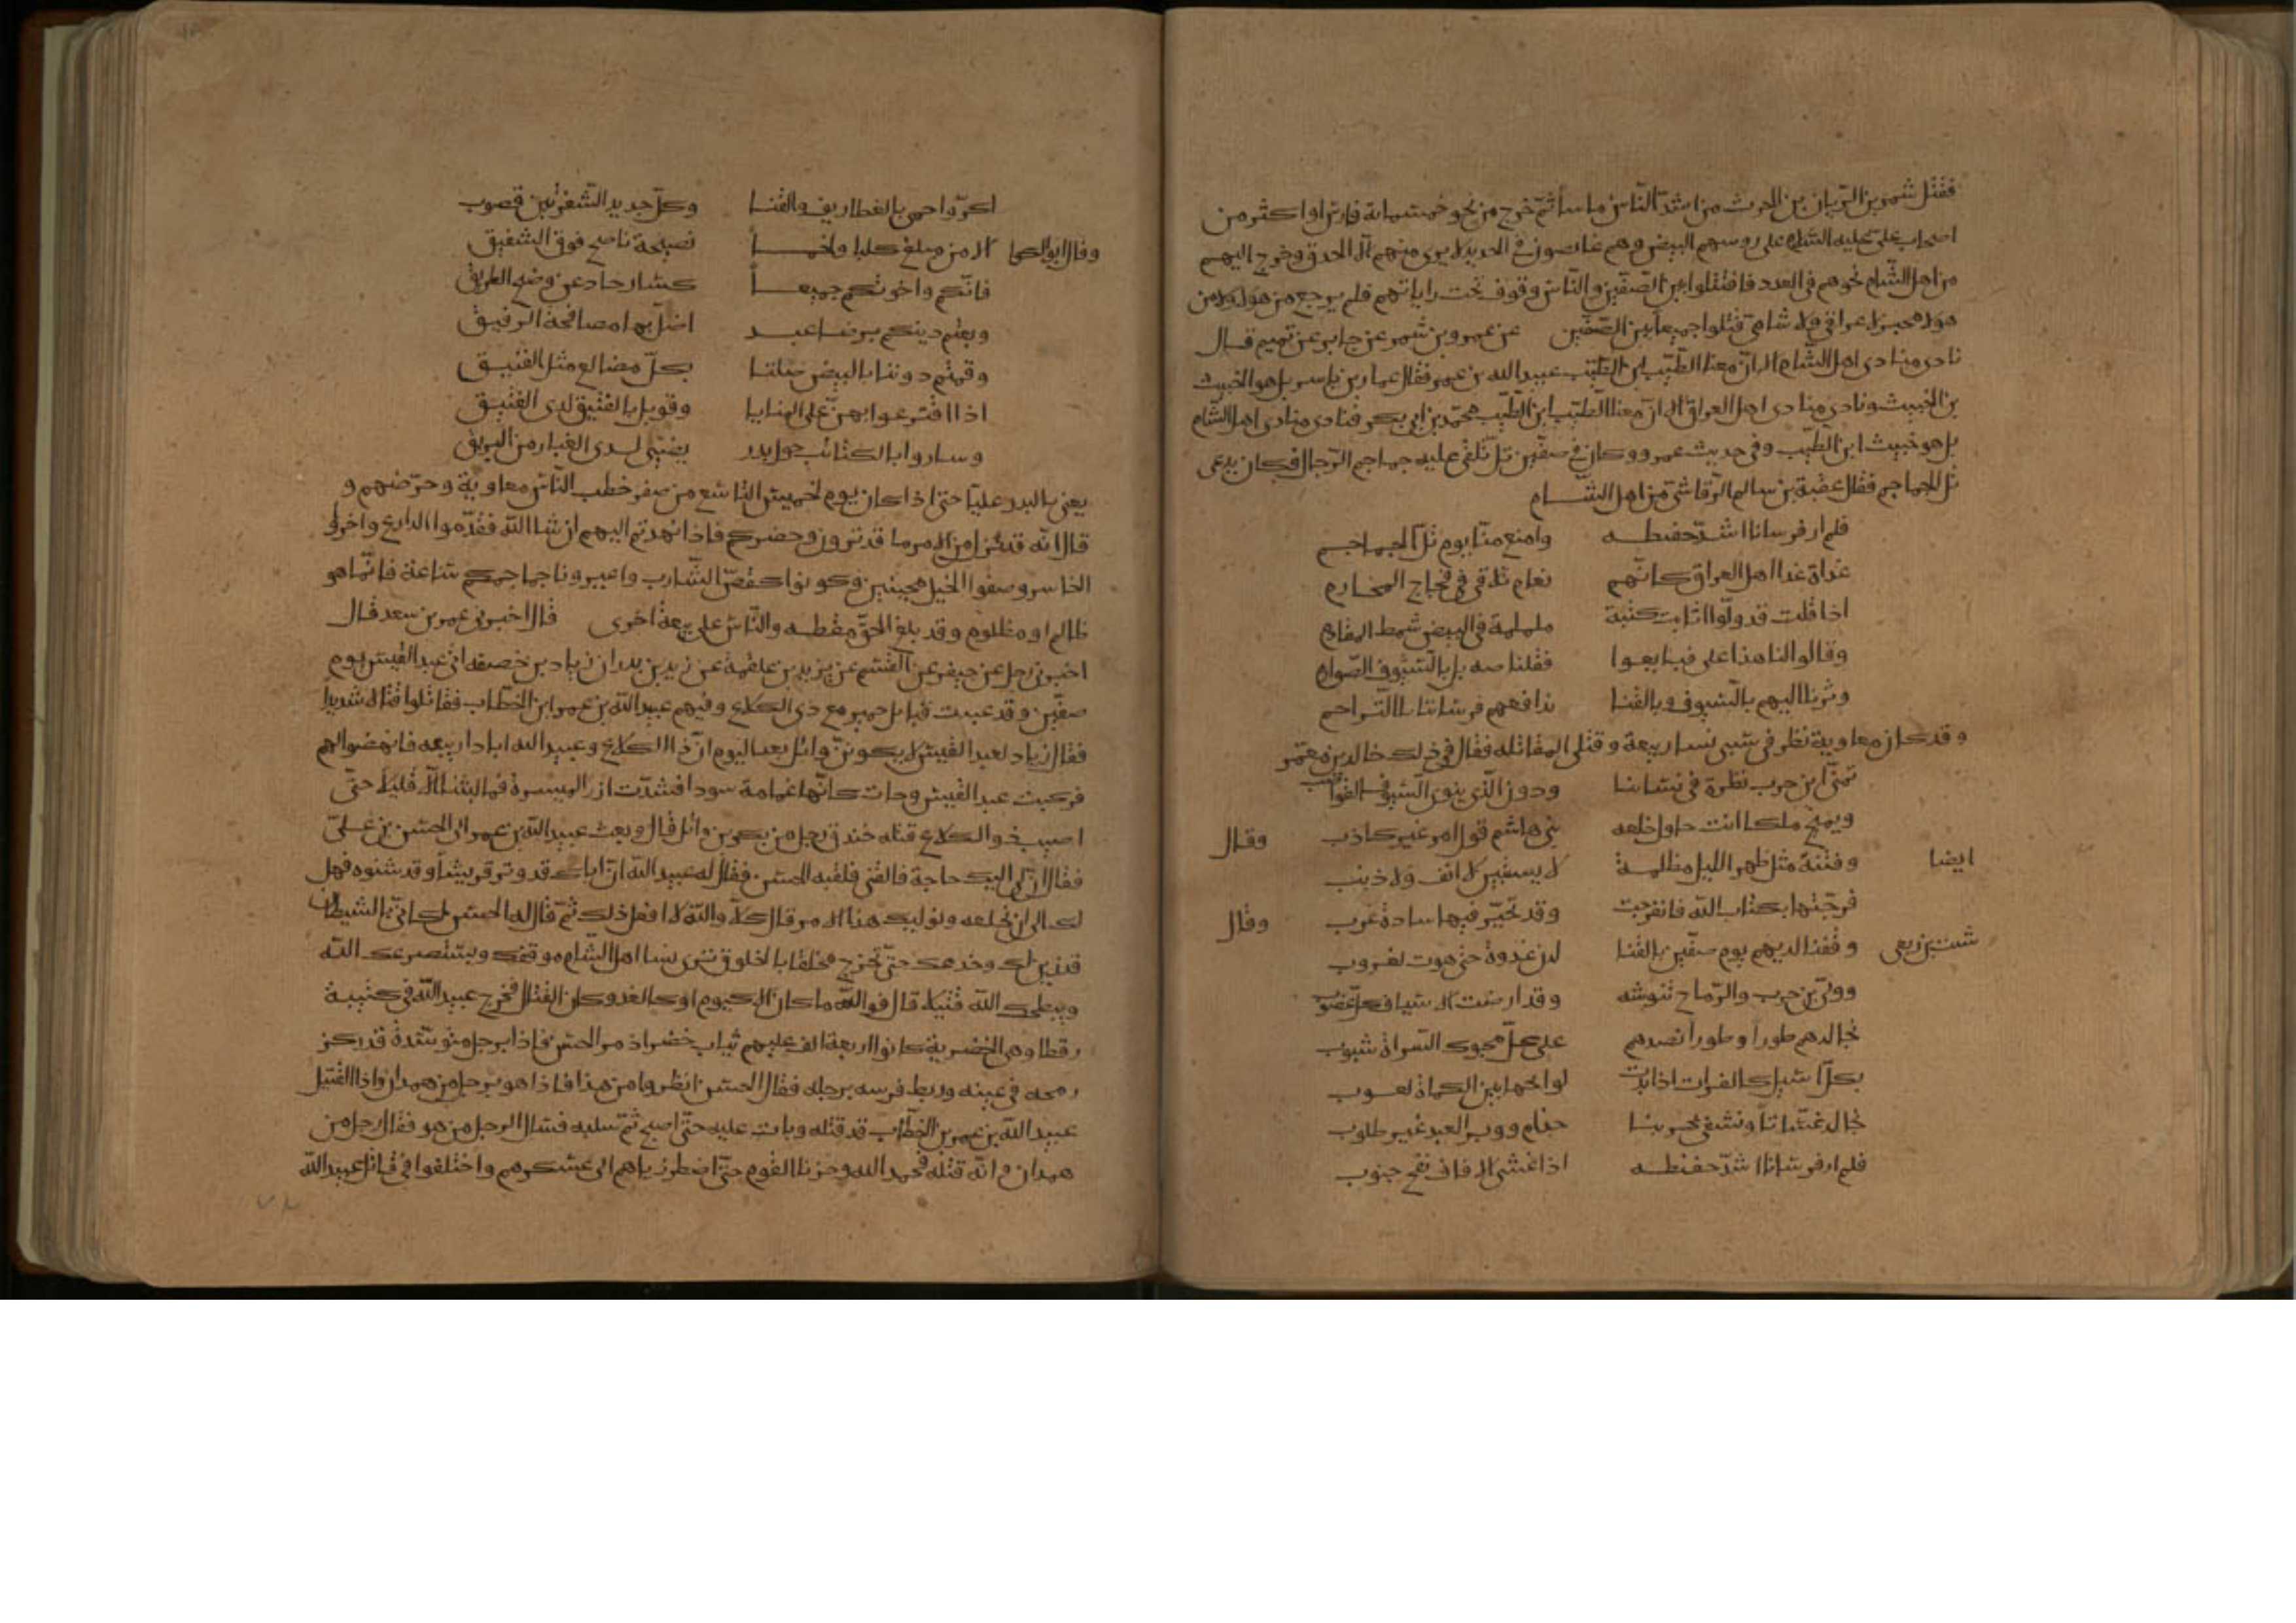 فقتل شمر بن الريان بن الحرث من اشد الناس باسا ثم خرج من نحو خمسماية فارس او اكثر من
اصحاب علي عليه السلام على روسهم البيض وهم غايصون في الحديد لا يرى منهم الا الحدق وخرج اليهم
من اهل الشام نحوهم في العدد فاقتتلوا بين الصفين والناس وقوف تحت راياتهم فلم يرجع من هولا ولا من
هولا مخبر لا عراقي ولا شامي قتلوا جميعا بين الصفين عن عمرو بن شمر عن جابر عن تميم قال
نادى منادى اهل الشام الا ان معنا الطيب ابن الطيب عبيد الله بن عمر فقال عمار بن ياسر بل هو الخبيث
بن الخبيث ونادى منادى اهل العراق الا ان معنا الطيب ابن الطيب محمد بن ابي بكر فنادى منادى اهل الشام
بل هو خبيث ابن الطيب وفي حديث عمرو وكان في صفين تل تلقى عليه جماجم الرجال فكان يدعى
تل الجماجم فقال عقبة بن سالم الرقاشي من اهل الشام
فلم ار فرسانا اشد حفيظه وامنع منا يوم تل الجماجم
غداة غدا اهل العراق كانهم نعام تلاقى في فجاج المخارم
اذا قلت قد ولوا اثابت كتيبة ململمة في البيض شمط المقادم
وقالوا لنا هذا على فبايعوا فقلنا صه بل بالسيوف الصوارم
وثرنا اليهم بالسيوف وبالقنا تدافعهم فرساننا بالتزاحم
وقد كان معاوية نظر في سبي نسا ربيعة وقتلى المقاتله فقال في ذلك خالد بن معمر
تمنى ابن حرب نظرة في نساينا ودون الذي ينوى السيوف القواضب
ويمنح ملكا انت حاول خلعه بني هاشم قول امر غير كاذب وقال
ايضا وفتنة مثل ظهر الليل مظلمة لا يستبين لا انف ولا ذنب
فرجتها بكتاب الله فانفرجت وقد تحير فيها سادة عرب وقال
شبث بن ربعى وقفنا لديهم يوم صفين بالقنا لدن غدوة حتى هوت لغروب
وولى بن حرب والرماح تنوشه وقد ارضت الاسياف كل غضوب
نجالدهم طورا وطورا نصدهم على كل محبوك السراة شبوب
بكل اسيل كالفرات اذا بدت لوائحها بين الكماة لعوب
نجالد غسانا وتشقى بحربنا جذام ووبر العبد غير طلوب
فلم ار فرسانا اشد حفيظه اذا غشى الافاق نفح جنوب
اكر واحمى بالغطاريف والقنا وكل حديد الشفرتين قضوب
وقال ابو الكما الا من مبلغ كلبا ولخما نصيحة ناصح فوق الشفيق
فانكم واخوتكم جميعا كشار حاد عن وضح الطريق
وبعتم دينكم برضا عبد اضل بها مصافحة الرفيق
وقمتم دوننا بالبيض صلتا بكل مضالع مثل الفنيق
اذا افترعوا بهن على المنايا وقوبل بالفنيق لدى الفنيق
وساروا بالكتائب حول بدر يضى لدى الغبار من البريق
يعنى بالبدر عليا حتى اذا كان يوم الخميس التاسع من صفر خطب الناس معاوية وحرضهم و
قال انه قد نزل من الامر ما قد ترون وحضركم فاذا نهدتم اليهم ان شا الله فقدموا الدارع واخروا
الحاسر وصفوا الخيل مجنبين وكونوا كقص الشارب واعيرونا جماجمكم ساعة فانما هو
ظالم او مظلوم وقد بلغ الحق مقطعه والناس على بيعة اخرى قال اخبرنى عمر بن سعد قال
اخبرنى رجل عن جيفر عن القسم عن يزيد بن علقمة عن زيد بن بدر ان زياد بن خصفه اتى عبد القيس يوم
صفين وقد عبيت قبايل حمير مع ذى الكلاع وفيهم عبيد الله بن عمر ابن الخطاب فقاتلوا قتالا شديدا
فقال زياد لعبد القيس لا بكر بن وائل بعد اليوم ان ذا الكلاع وعبيد الله ابادا ربيعه فانهضوا لهم
فركبت عبد القيس وجات كانها غمامة سودا فشدت ازر الميسرة فما لبثنا الا قليلا حتى
اصيب ذو الكلاع قتله خندق رجل من بكر بن وائل قال وبعث عبيد الله بن عمر الى الحسن بن على
فقال ان لى اليك حاجة فالقنى فلقيه الحسن فقال له عبيد الله ان اباك قد وتر قريشا وقد شنوه فهل
لك الى ان تخلعه ونوليك هذا الامر قال كلا والله لا افعل ذلك ثم قال له الحسن لكاني الشيطان
قد زين لك وخدعك حتى تخرج مخلقا بالخلوق ترى نسا اهل الشام موقفك وسيصرعك الله
ويبطحك الله قتيلا قال فوالله ما كان الا كيوم او كالغد وكان القتال فخرج عبيد الله في كتيبة
رقطا وهى الخضرية كانوا اربعة الف عليهم ثياب خضر اذ مر الحسن فاذا برجل متوسد قد ركز
رمحه في عينه وربط فرسه برجله فقال الحسن انظروا من هذا فاذا هو برجل من همدان واذا القتيل
عبيد الله بن عمر بن الخطاب قد قتله وبات عليه حتى اصبح ثم سلبه فسال الرجل من هو فقال رجل من
همدان وانه قتله فحمد الله وحزنا القوم حتى اضطرناهم الى عسكرهم واختلفوا في قاتل عبيد الله